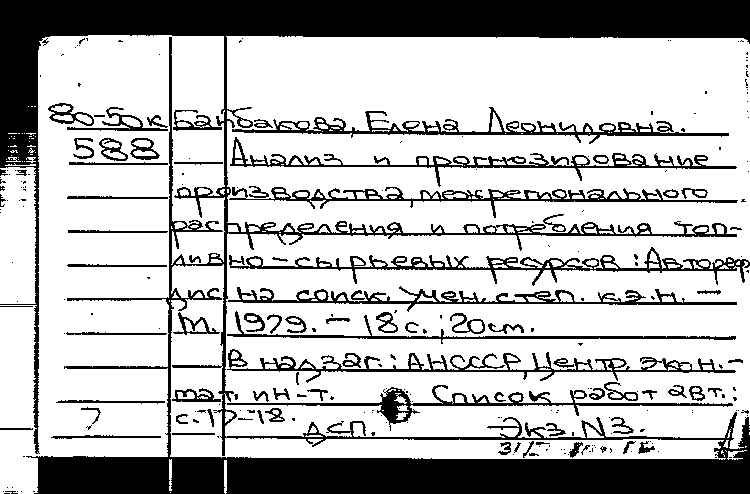 80-50к Байбакова, Елена Леонидовна.
588 Анализ и прогнозирование
производства, межрегионального
распределения и потребления топ-
ливно-сырьевых ресурсов: Автореф.
дис. на соиск. учен. степ. к.э.н. –
М. 1979. – 18 с.; 20см.
В надзаг.: АНСССР, Центр. экон.-
мат. ин-т. Список работ авт.:
7 с. 17-18.
ДСП. Экз. N3.